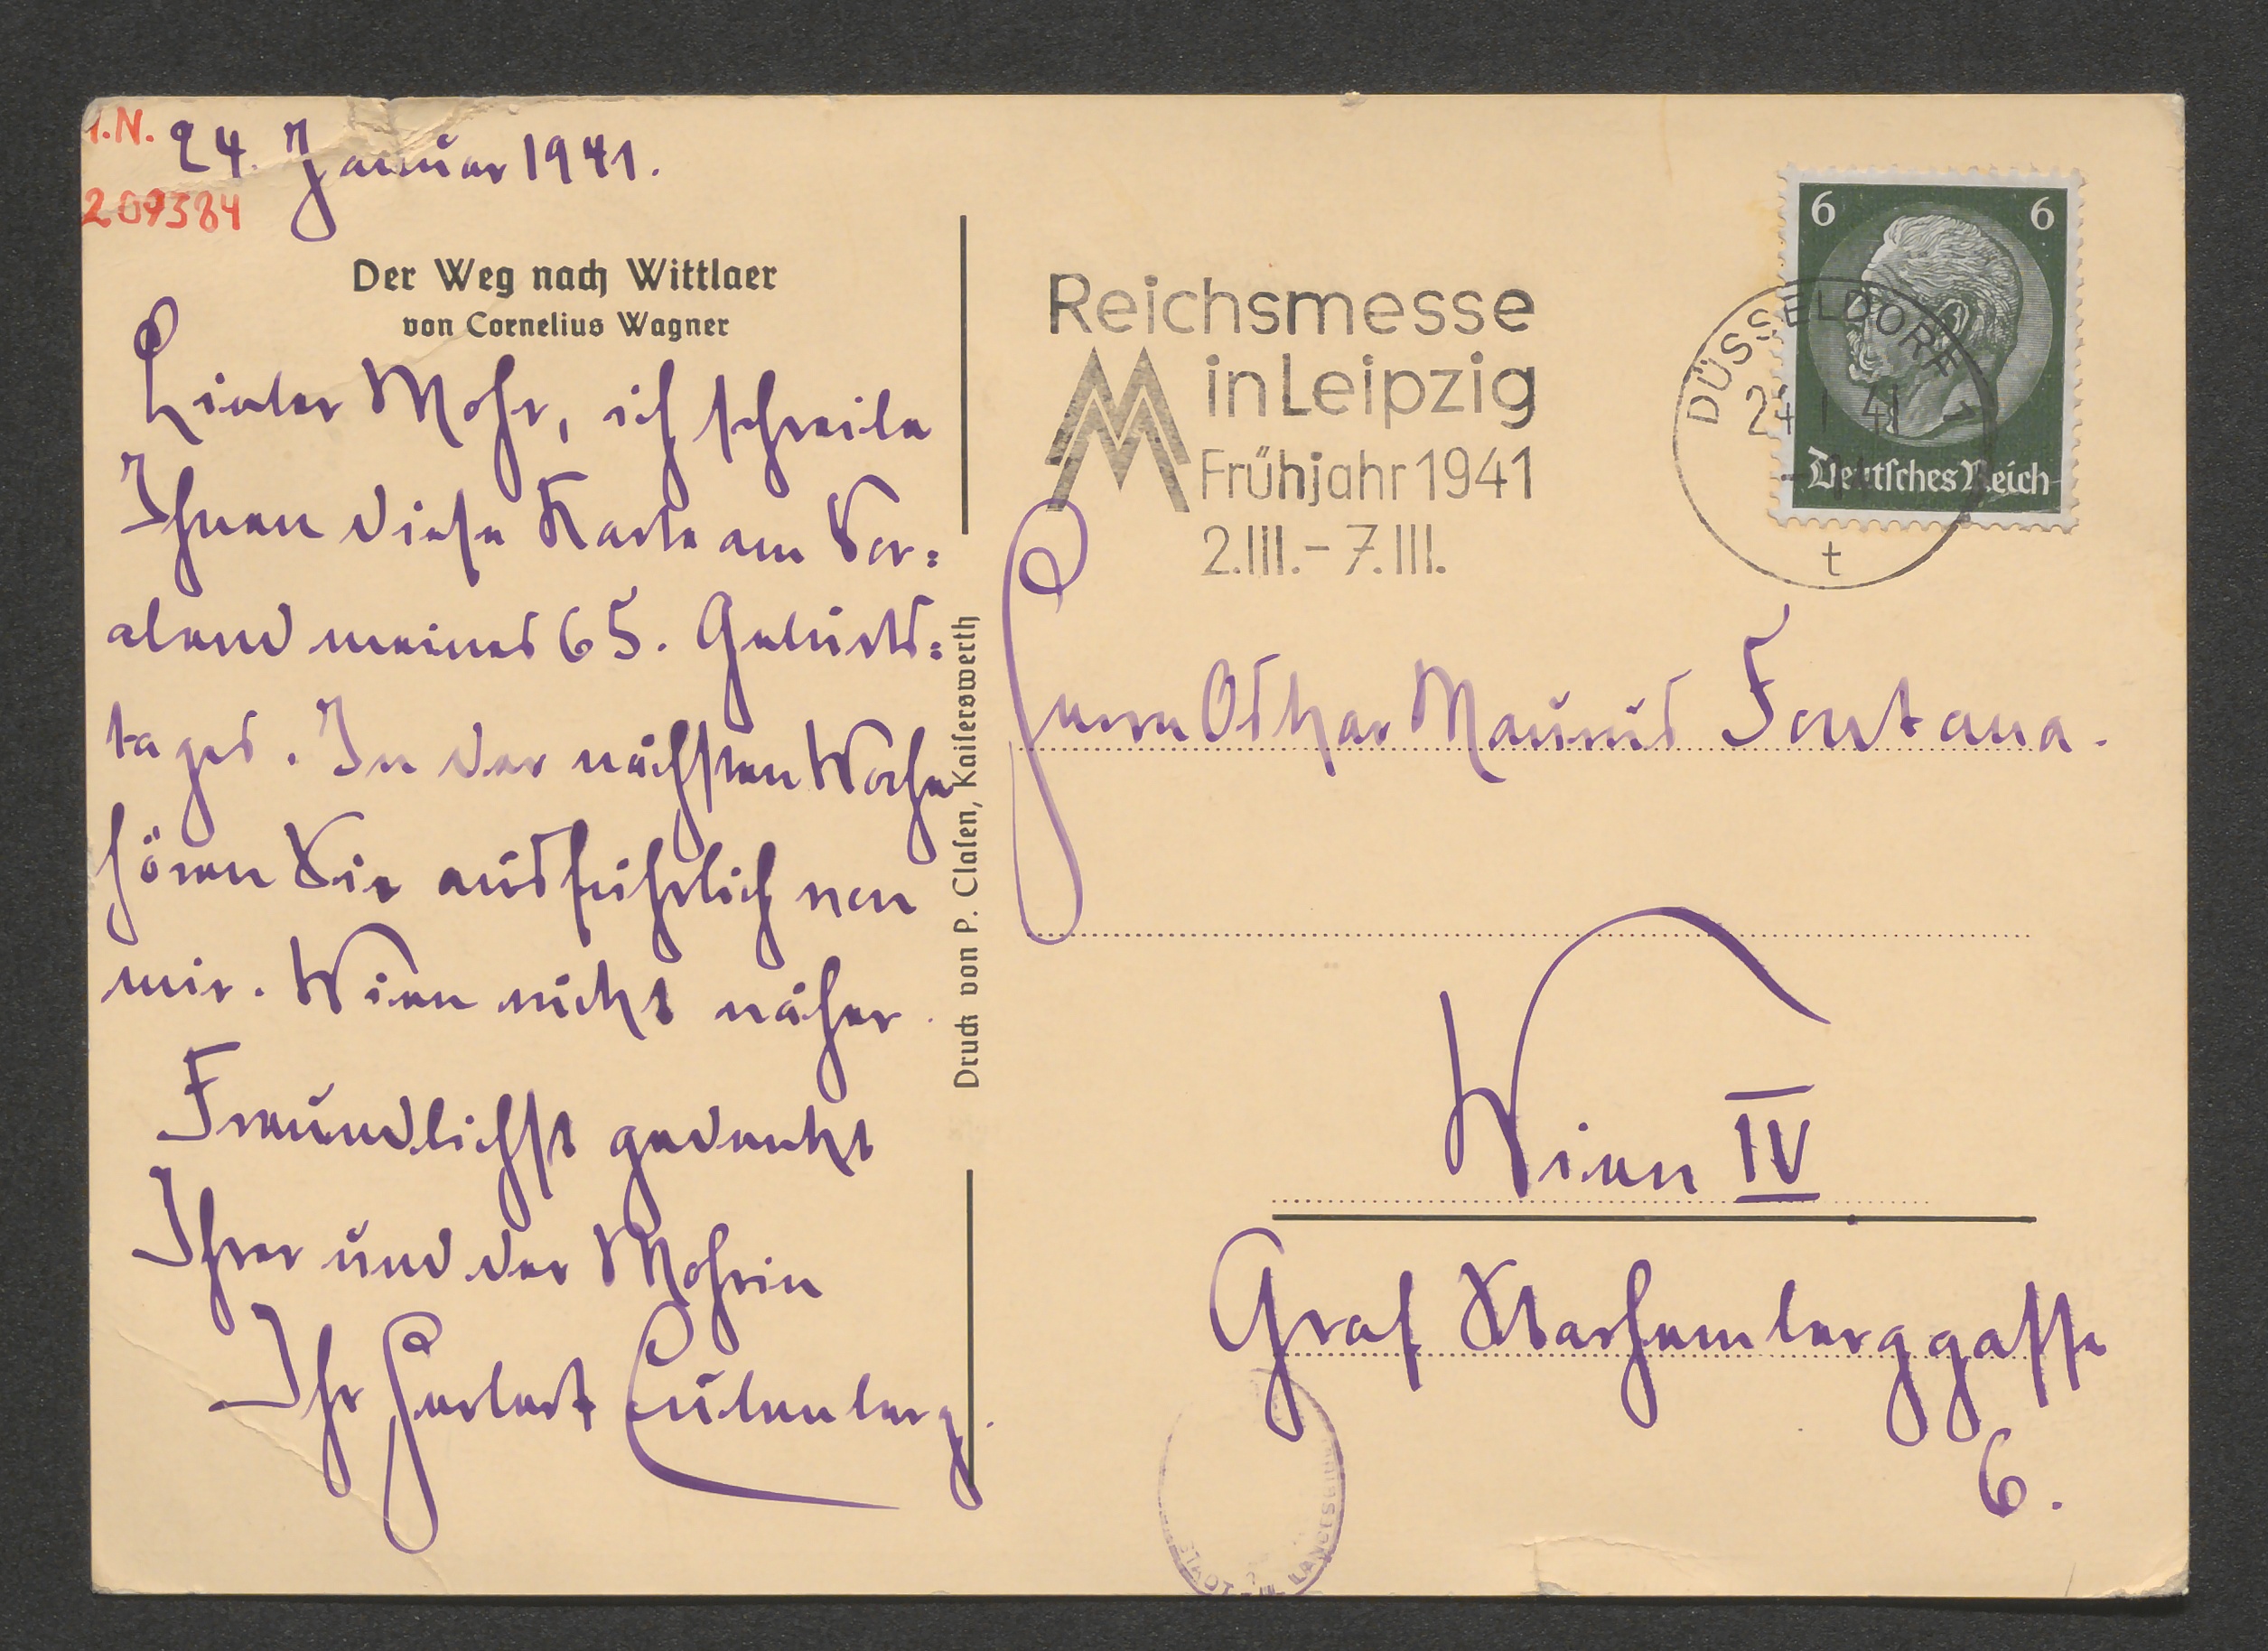 I.N.
209384
24. Januar 1941.
Der Weg nach Wittlaer
von Cornelius Wagner
Lieber Mohr, ich schreibe
Ihnen diese Karte am Vor=
abend meines 65. Geburts=
tages. In der nächsten Woche
hören Sie ausführlich von
mir. Wien rückt näher.
Freundlichst gedenkt
Ihrer und der Mohrin
Ihr Herbert Eulenberg.
Druck von P. Clasen, Kaiserswerth
Reichsmesse
in Leipzig
Frühjahr 1941
2.III.-7.III.
6 6
Deutsches Reich
DÜSSELDORF 1
24 1 41
t
Herrn Oskar Maurus Fontana.
Wien IV
Graf Starhemberggasse
6.